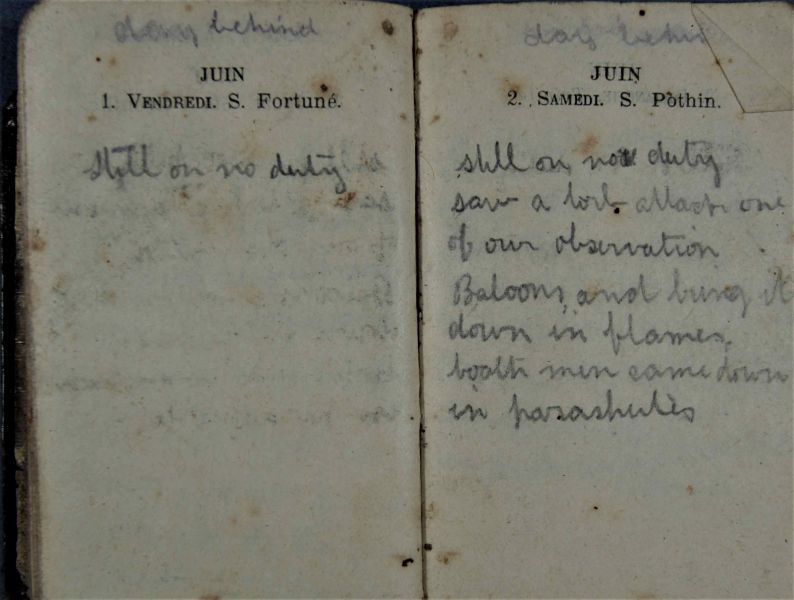 day behind
JUIN
1. VENDREDI. S. Fortuné.
still on no duty
day behi
JUIN
2. SAMEDI. S. Pothin.
still on no duty
saw a attack one
of our observation
Baloons and bring it
down in flames.
boath men came down
in parashutes